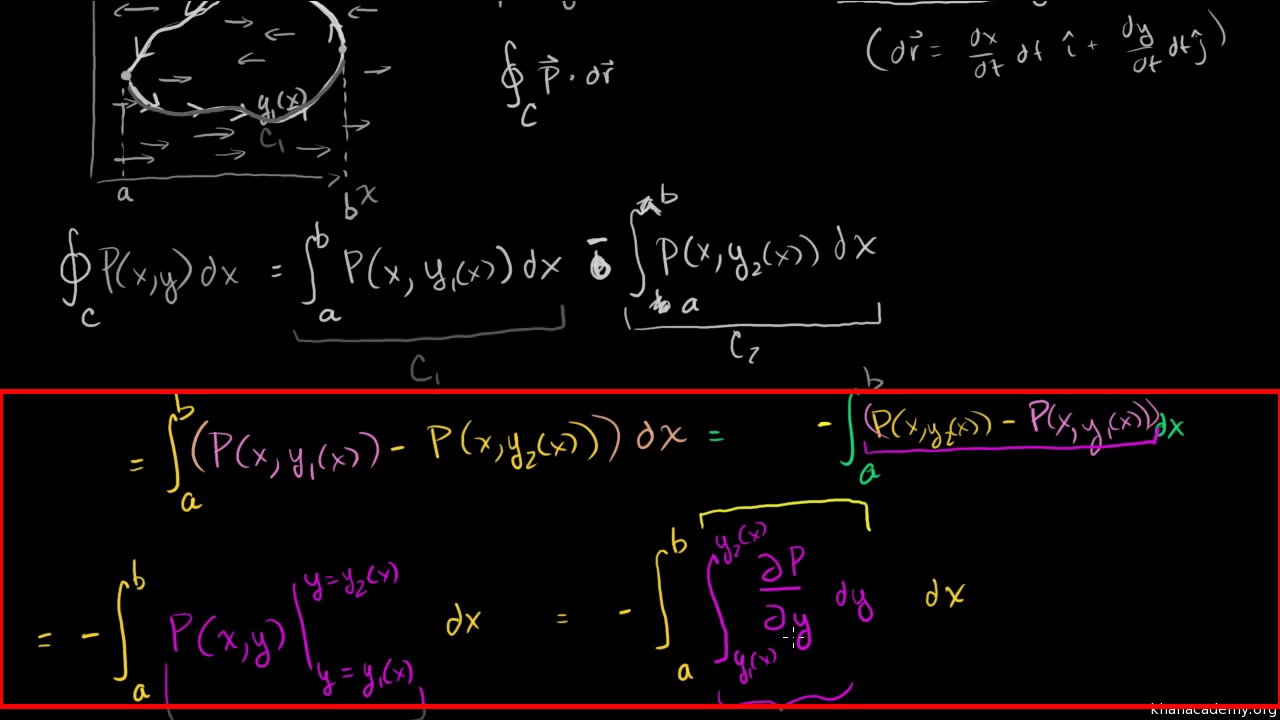 y₁(x)
C₁
a
b x
∮_C P⃗ · dr⃗
(dr⃗ = dx/dt dt î + dy/dt dt ĵ)
∮_C P(x,y) dx = ∫_a^b P(x, y₁(x)) dx - ∫_a^b P(x, y₂(x)) dx
C₁ C₂
= ∫_a^b (P(x, y₁(x)) - P(x, y₂(x))) dx = - ∫_a^b (P(x,y₂(x)) - P(x,y₁(x))) dx
= - ∫_a^b P(x,y) |_{y=y₁(x)}^{y=y₂(x)} dx = - ∫_a^b ∫_{y₁(x)}^{y₂(x)} ∂P/∂y dy dx
khanacademy.org